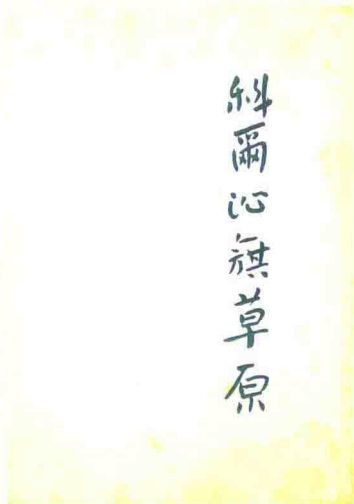 科爾沁旗草原